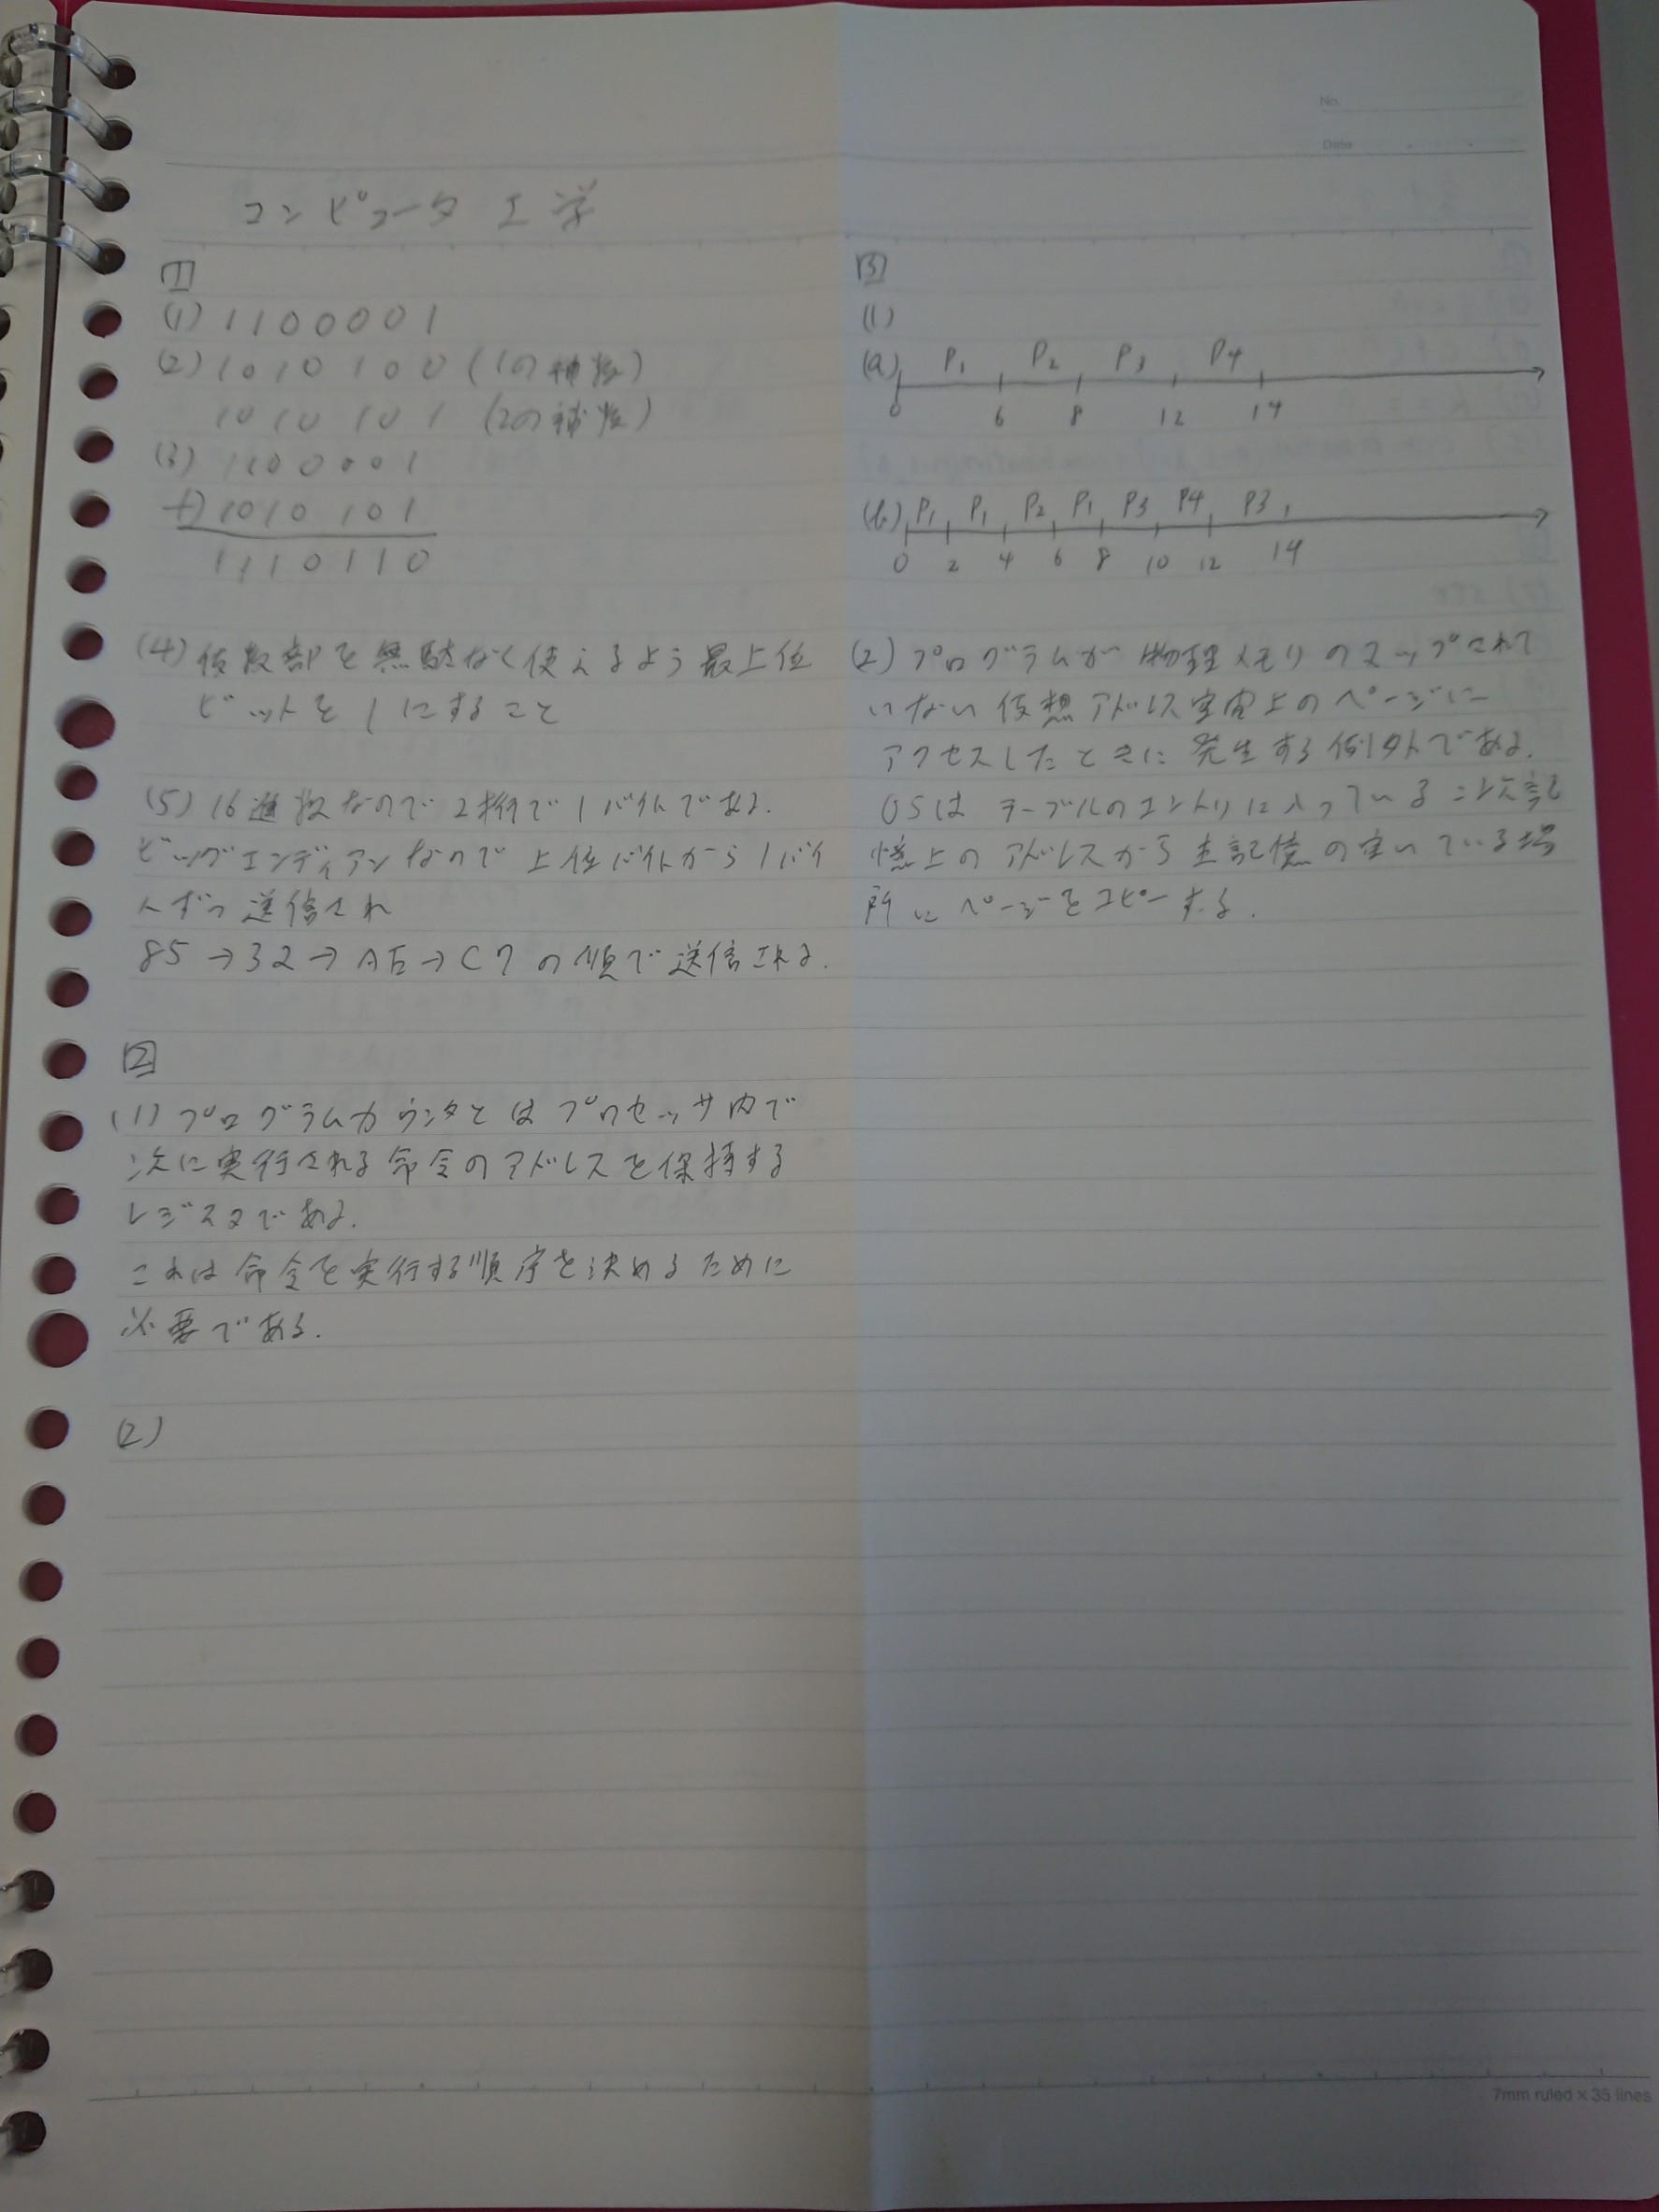 No.
Date
コンピュータ工学
1
(1) 1100001
(2) 1010 100 (1の補数)
1010 101 (2の補数)
(3) 1100001
+) 1010 101
1110110
(4) 仮数部を無駄なく使えるよう最上位
ビットを1にすること
(5) 16進数なので2桁で1バイトである.
ビッグエンディアンなので上位バイトから1バイ
トずつ送信され
85→32→AE→C7の順で送信される.
2
(1) プログラムカウンタとはプロセッサ内で
次に実行される命令のアドレスを保持する
レジスタである.
これは命令を実行する順序を決めるために
必要である.
(2)
3
(1)
(a) P1 P2 P3 P4
0 6 8 12 14
(b) P1 P1 P2 P1 P3 P4 P3
0 2 4 6 8 10 12 14
(2) プログラムが物理メモリのマップされて
いない仮想アドレス空間上のページに
アクセスしたときに発生する例外である.
OSはテーブルのエントリに入っている二次記
憶上のアドレスから主記憶の空いている場
所にページをコピーする.
7mm ruled × 35 lines